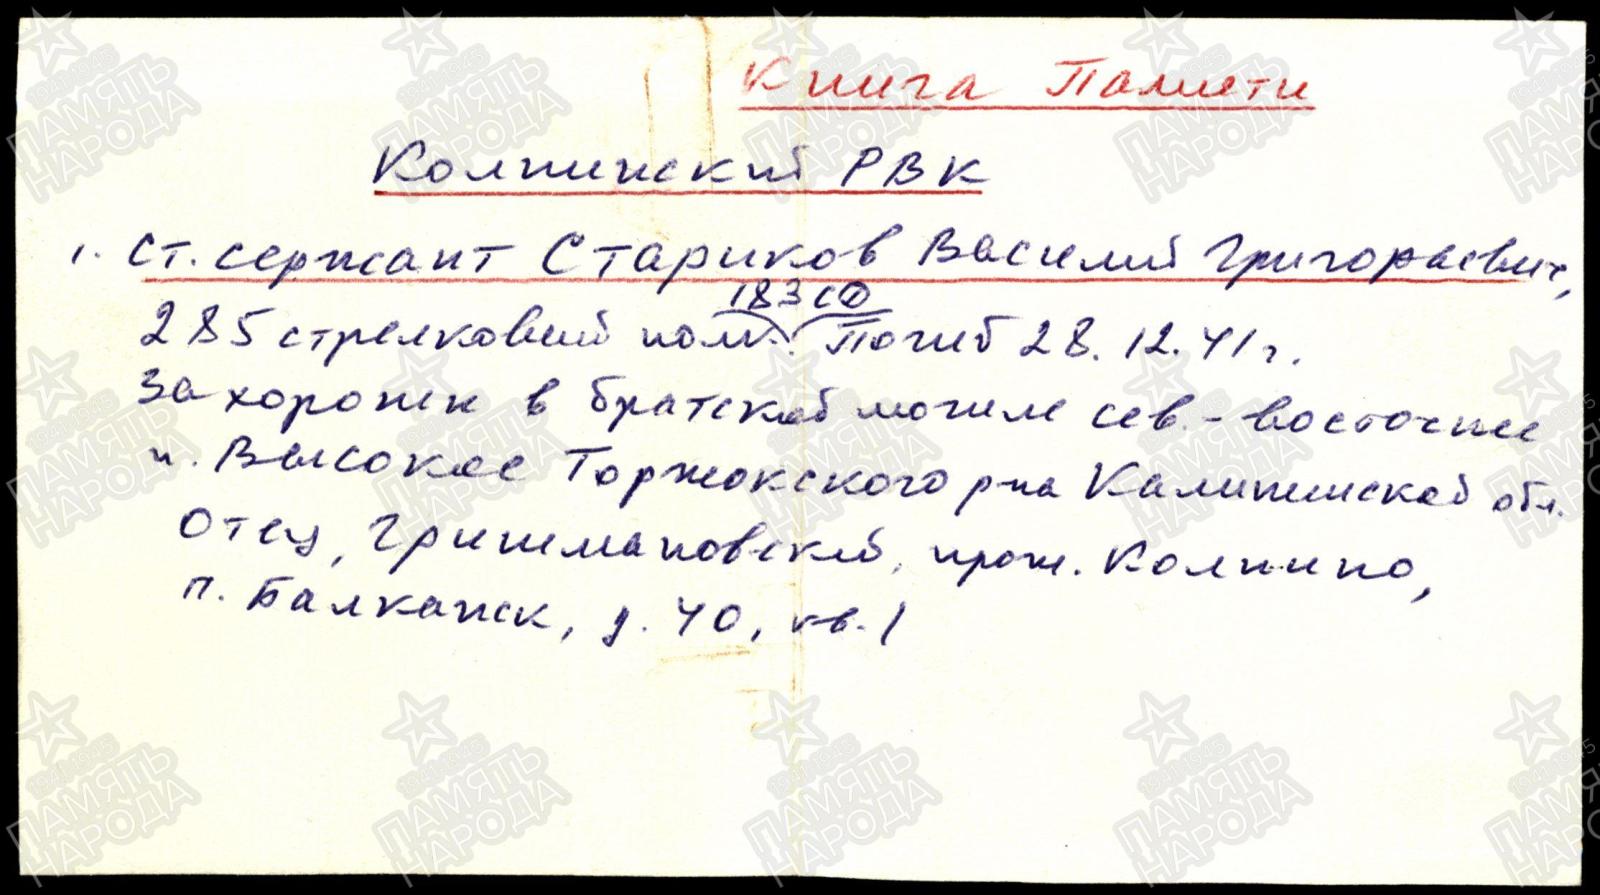 Книга Памяти
Колпинский РВК
1. Ст. сержант Стариков Василий Григорьевич,
183 сд
285 стрелковый полк. Погиб 28.12.41г.
Захоронен в братской могиле сев.-восточнее
н. Высокое Торжокского р-на Калининской обл.
Отец, Гришмановский, прож. Колпино,
п. Балканск, д. 40, кв. 1
1941 1945
ПАМЯТЬ
НАРОДА